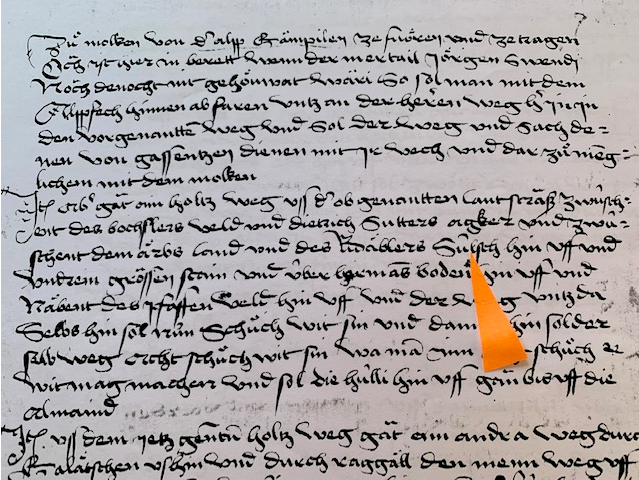 Zů molken von d' alpp Gampilen ze fůren und ze tragen
Och ist hier in berett wenn der mertail Jörgen Swendi
Noch denocht nit gehöuwat wäri So sol man mit dem
Alppfech hinnen ab faren untz an der herren weg hin in
den vorgenantten weg und sol der weg und sach de=
nen von gassentzen dienen mit ir vech und dar zů meng=
lichem mit dem molken
Itē gät ain holtz weg uss d' ob genantten lantsträß zwüsch=
ent des bochslers veld und dietrich Sutters agker und zwü=
schent dem ärbs land und des hin uff und
undrem grössen stain und über boden hin uff und
Näbent des pfaffen veld hin uff und der untz da
Selbs hin sol nün Schůch wit sin und hin sol der
selb weg acht schůch wit sin wa mā inn schůch
wit mag machen und sol die hülli hin uff gän bis uff die
almaind
Itē uss dem ietz holtz weg gät ain andra weg durch
ushin und durch raggäll den menn weg uff